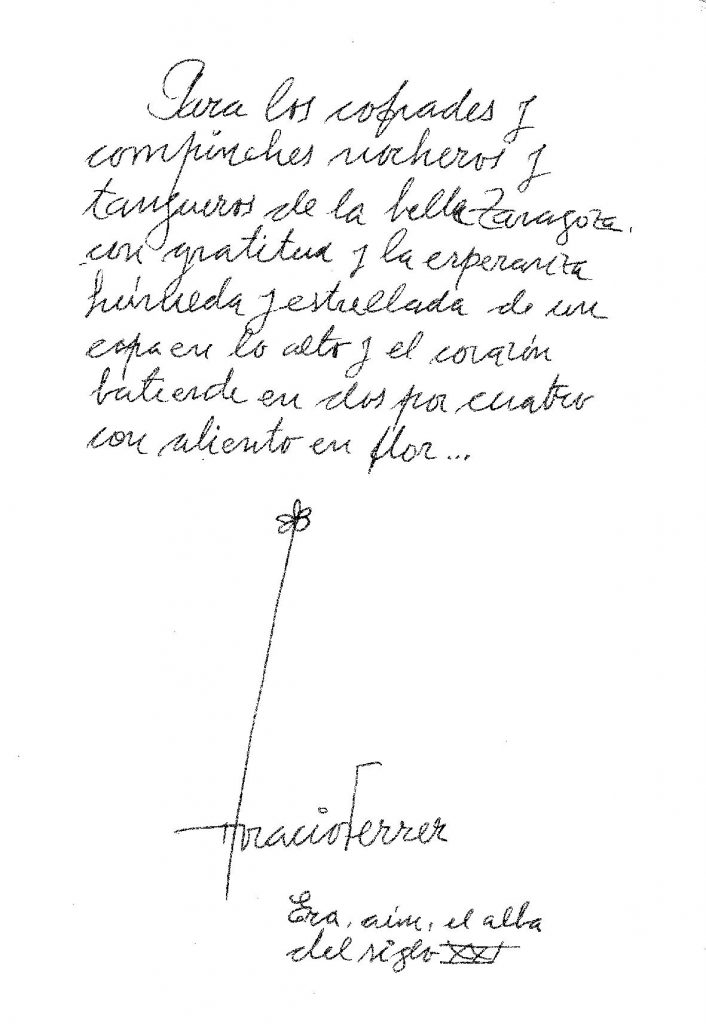 Para los cofrades y
compinches nocheros y
tangueros de la bella Zaragoza.
con gratitud y la esperanza
húmeda y estrellada de un
copa en lo alto y el corazón
batiende en dos por cuatro
con aliento en flor...
Horacio Ferrer
Era, aún, el alba
del siglo XXI